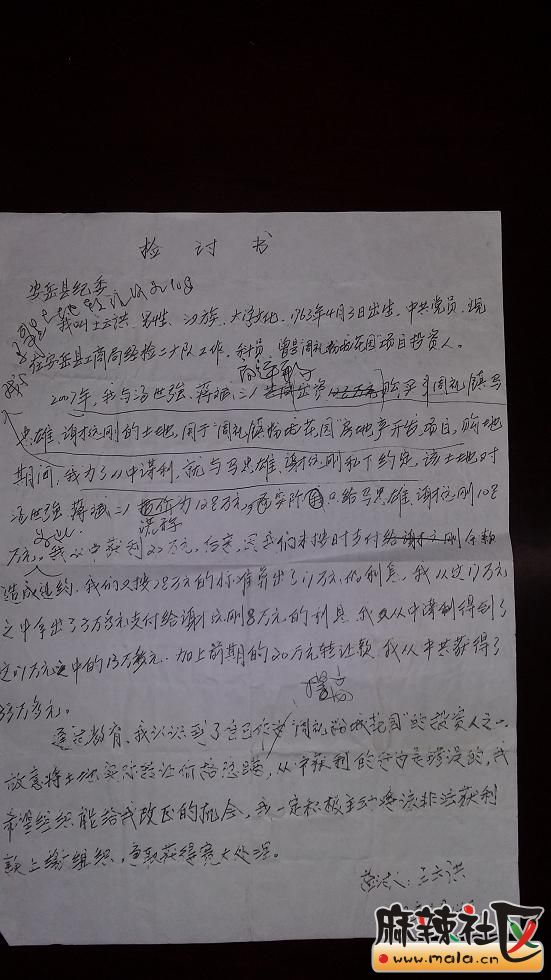 检讨书
安岳县纪委
我叫王云洪、男性、汉族、大学文化、1963年4月3日出生、中共党员、现
在安岳县工商局经检二大队工作、科员、曾是周礼杨柏花园项目投资人。
2007年,我与汤世强、蒋斌二人共同出资128万元购买了周礼镇马
忠雄、谢杭刚的土地,用于“周礼镇杨柏花园”房地产开发项目,购地
期间,我为了从中谋利,就与马忠雄、谢杭刚私下约定,该土地对
汤世强、蒋斌二人 为128万元,而实际 只给马忠雄、谢杭刚108
万元。我从中获利20万元。后来,因我们未按时支付给谢杭刚余款
造成违约,我们又按78万的标准算出了 万元的利息,我从这 万元
之中拿出了 万多元支付给谢杭刚8万元的利息,我又从中谋利得到了
这 万元之中的13万多元,加上前期的20万元转让款,我从中共获得了
33万多元。
通过教育,我认识到了自己作为“周礼 花园”的投资人之一,
故意将土地实际转让价格隐瞒,从中获利的行为是错误的,我
希望组织能给我改正的机会,我一定积极主动将该非法获利
款上缴组织,争取获得宽大处理。
检讨人:王云洪
麻辣社区
www.mala.cn